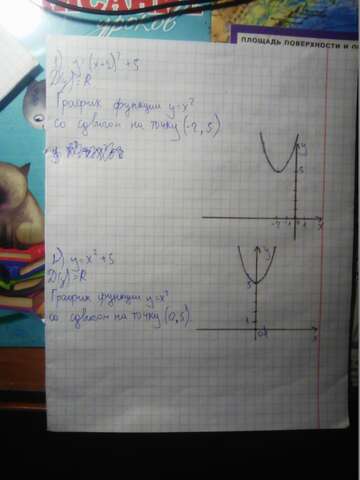 УРОКОВ
ПЛОЩАДЬ ПОВЕРХНОСТИ И О
1) y=(x-2)²+5
D(y)=R
График функции y=x²
со сдвигом на точку (-2,5)
y
5
-2
1
x
2) y=x²+5
D(y)=R
График функции y=x²
со сдвигом на точку (0,5)
y
5
1
0
1
x